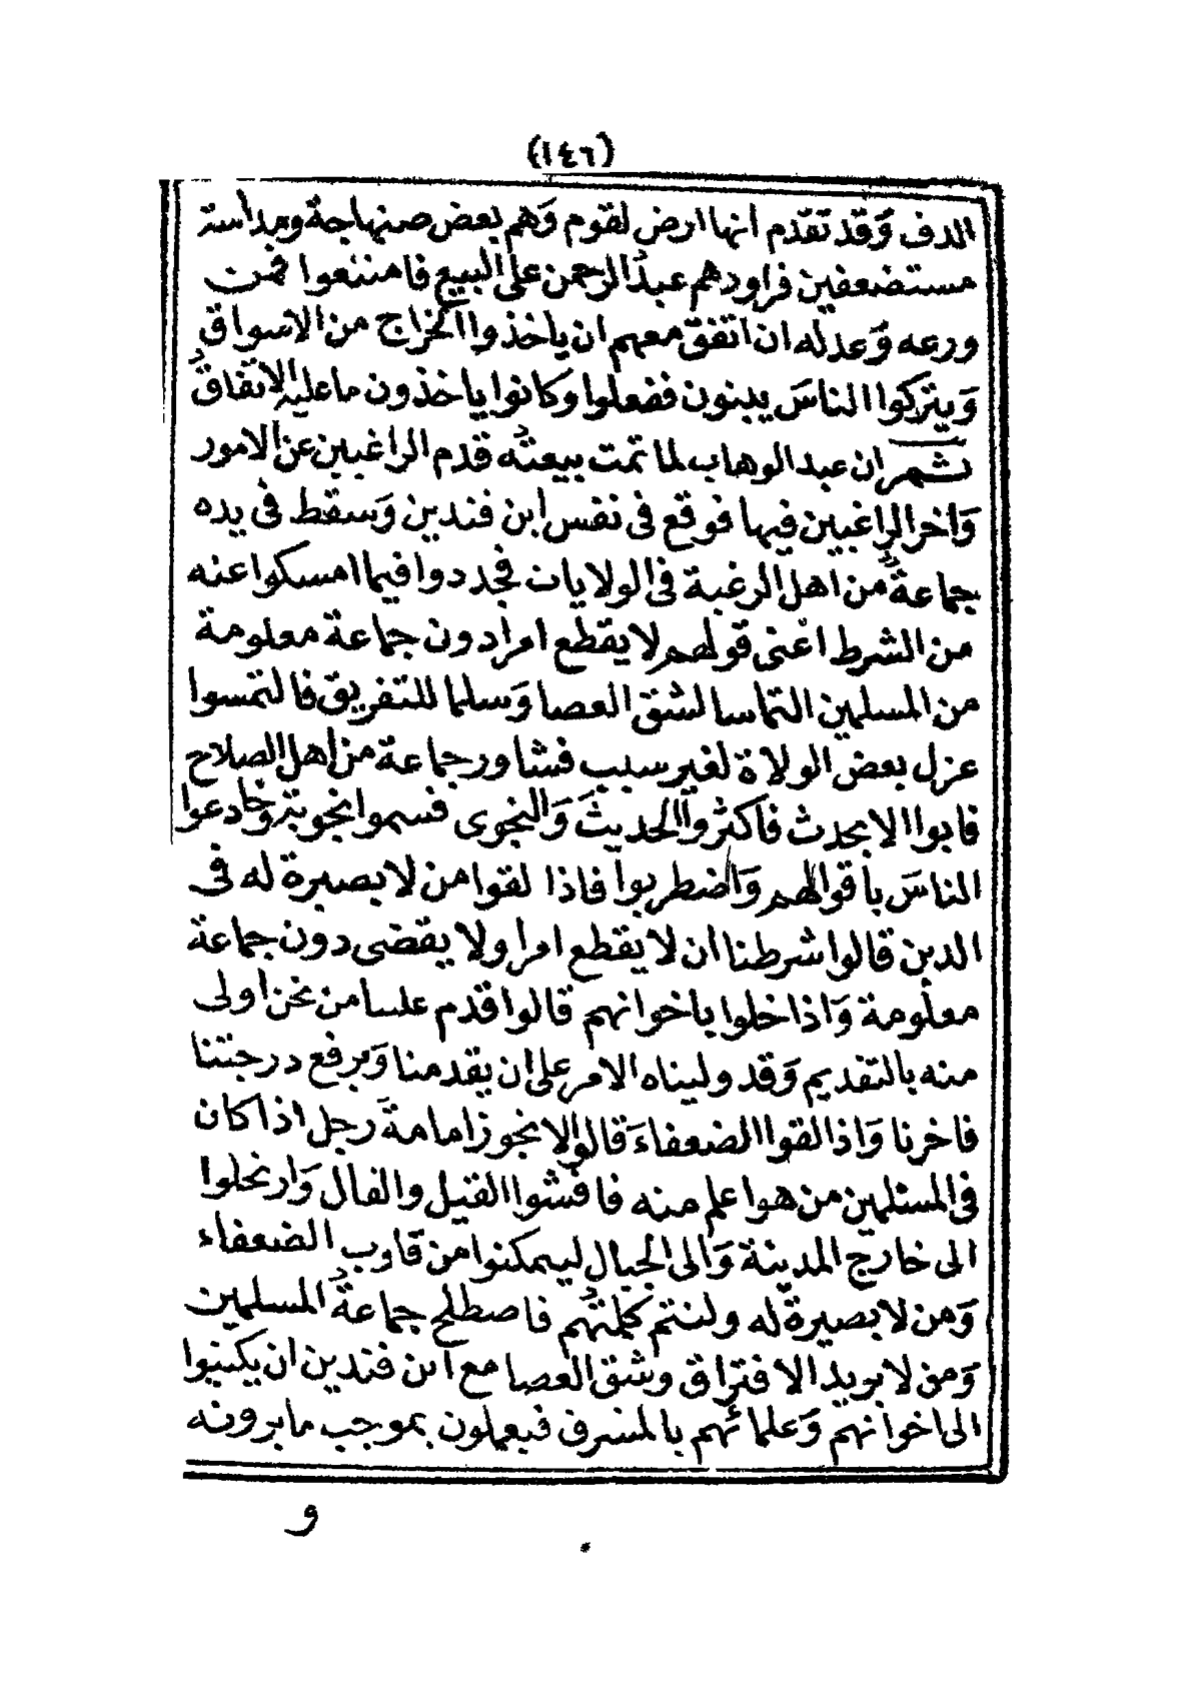 (١٤٦)
الدف وقد تقدم انها ارض لقوم وهم بعض صنهاجة ومداسة
مستضعفين فراودهم عبد الرحمن على البيع فامتنعوا فمن
ورعه وعدله ان اتفق معهم ان ياخذوا الخراج من الاسواق
ويتركوا الناس يبنون ففعلوا وكانوا ياخذون ما عليه الاتفاق
ثم ان عبد الوهاب لما تمت بيعته قدم الراغبين عن الامور
واخر الراغبين فيها فوقع في نفس ابن فندين وسقط في يده
جماعة من اهل الرغبة في الولايات فجددوا فيما امسكوا عنه
من الشرط اعنى قولهم لا يقطع امرا دون جماعة معلومة
من المسلمين التماسا لشق العصا وسلما للتفريق فالتمسوا
عزل بعض الولاة لغير سبب فشاور جماعة من اهل الصلاح
فابوا الا بحدث فاكثروا الحديث والنجوى فسموا نجوية وخادعوا
الناس باقوالهم واضطربوا فاذا لقوا من لا بصيرة له في
الدين قالوا شرطنا ان لا يقطع امرا ولا يقضى دون جماعة
معلومة واذا خلوا باخوانهم قالوا قدم علينا من نحن اولى
منه بالتقديم وقد وليناه الامر على ان يقدمنا ويرفع درجتنا
فاخرنا واذا لقوا الضعفاء قالوا لا نجوز امامة رجل اذا كان
في المسلمين من هو اعلم منه فافشوا القيل والقال وارتحلوا
الى خارج المدينة والى الجبال ليتمكنوا من قلوب الضعفاء
ومن لا بصيرة له ولتتم كلمتهم فاصطلح جماعة المسلمين
ومن لا يريد الافتراق وشق العصا مع ابن فندين ان يكتبوا
الى اخوانهم وعلمائهم بالمشرق فيعملون بموجب ما يرونه
و